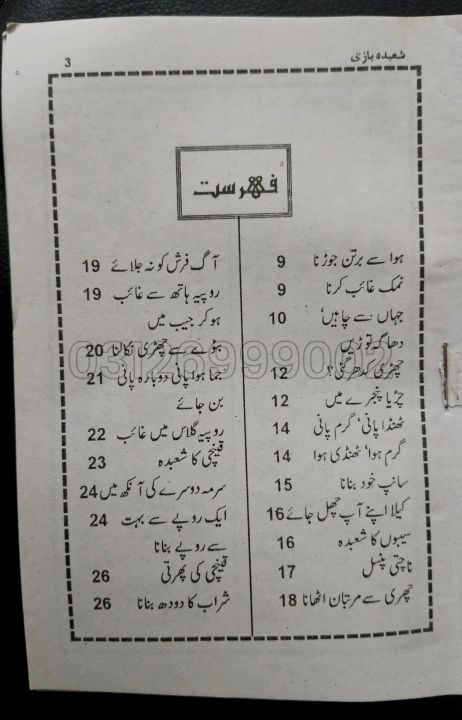 شعبدہ بازی
3
فہرست
ہوا سے برتن جوڑنا 9
نمک غائب کرنا 9
جہاں سے چاہیں' 10
دھاگہ توڑیں
چھڑی کدھر گئی؟ 12
چڑیا پنجرے میں 12
ٹھنڈا پانی' گرم پانی 14
گرم ہوا' ٹھنڈی ہوا 14
سانپ خود بنانا 15
کیلا اپنے آپ چھل جائے 16
سیبوں کا شعبدہ 16
ناچتی پنسل 17
چھری سے مرتبان اٹھانا 18
آگ فرش کو نہ جلائے 19
روپیہ ہاتھ سے غائب 19
ہو کر جیب میں
بٹوے سے چھڑی نکالنا 20
جما ہوا پانی دوبارہ پانی 21
بن جائے
روپیہ گلاس میں غائب 22
قینچی کا شعبدہ 23
سرمہ دوسرے کی آنکھ میں 24
ایک روپے سے بہت 24
سے روپے بنانا
قینچی کی پھرتی 26
شراب کا دودھ بنانا 26
03120999002